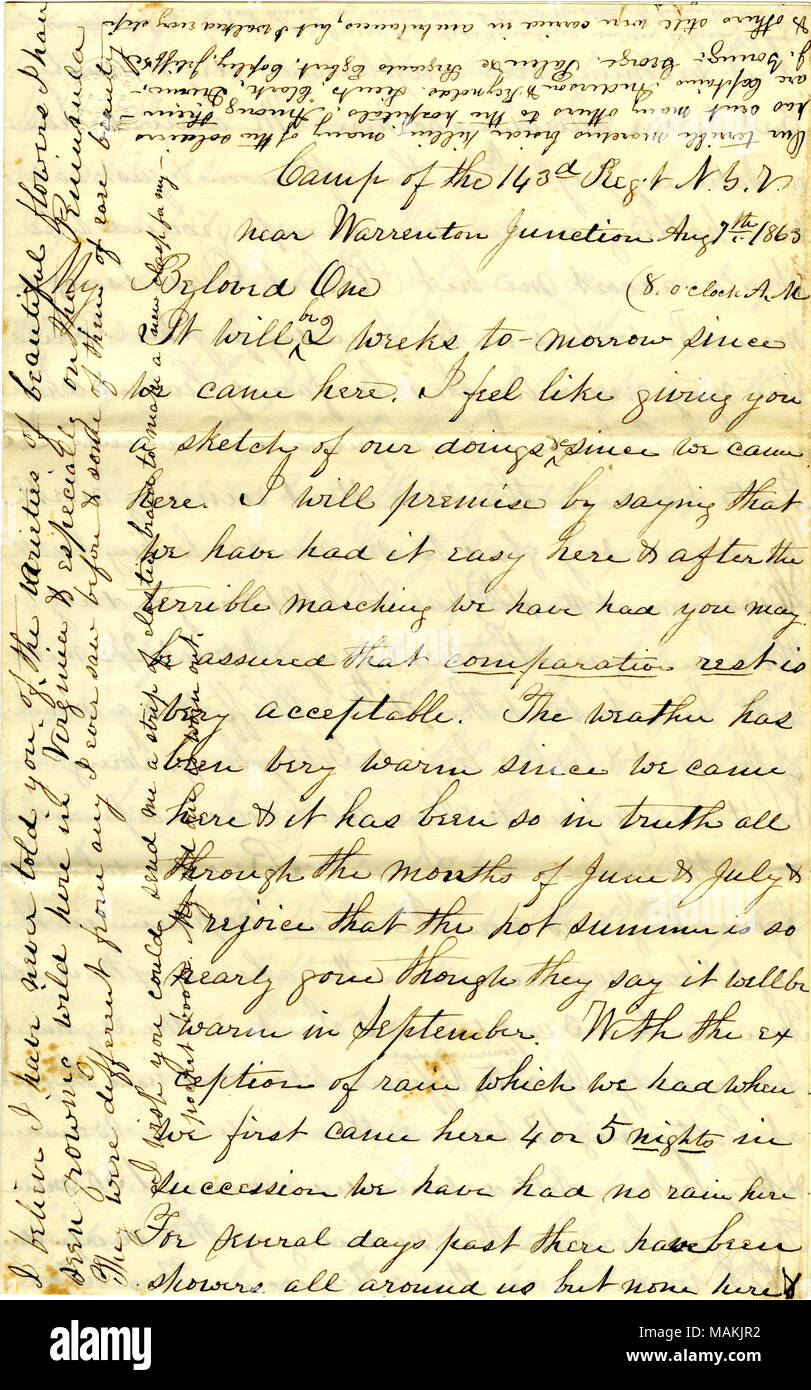 Camp of the 143d Regt N.Y.V
near Warrenton Junction Aug 7th. 1863
My Beloved One (8. o'clock A.M
It will be 2 weeks to-morrow since
we came here. I feel like giving you
a sketch of our doings since we came
here. I will premise by saying that
we have had it easy here & after the
terrible marching we have had you may
be assured that comparative rest is
very acceptable. The weather has
been very warm since we came
here & it has been so in truth all
through the months of June & July &
I rejoice that the hot summer is so
nearly gone though they say it will be
warm in September. With the ex
ception of rain which we had when
we first came here 4 or 5 nights in
succession we have had no rain here
For several days past there have been
showers all around us but none here &
I believe I have never told you of the varieties of beautiful flowers I have
seen growing wild here in Virginia & especially on the Peninsula
They were different from any I ever saw before & some of them of rare beauty
I wish you could send me a strip of elastic braid to make a new clasp for my
pocket book. My old one is worn out.
Our terrible marches besides killing many of the soldiers
too sent many others to the hospitals. Among them
are Captains Anderson & Reynolds. Lieuts Clark,
George. Sergeants Egbert, Copley,
& others still were carried in ambulances, but I walked every step
alamy
Image ID: MAKJR2
www.alamy.com